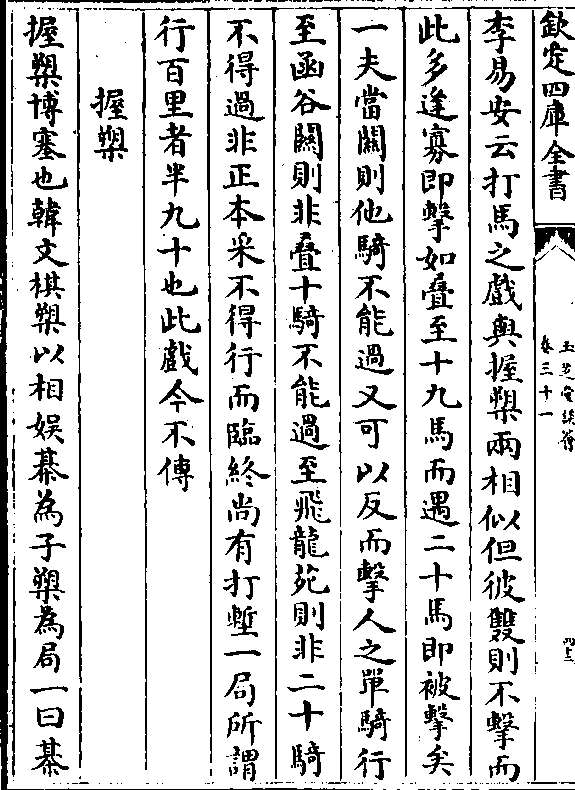 欽定四庫全書
玉芝堂談薈
卷三十一
李易安云打馬之戲與握槊兩相似但彼雙則不擊而
此多逢寡即擊如疊至十九馬而遇二十馬即被擊矣
一夫當關則他騎不能過又可以反而擊人之單騎行
至函谷關則非疊十騎不能過至飛龍苑則非二十騎
不得過非正本采不得行而臨終尚有打塹一局所謂
行百里者半九十也此戲今不傳
握槊
握槊博塞也韓文棋槊以相娛棊為子槊為局一曰棊